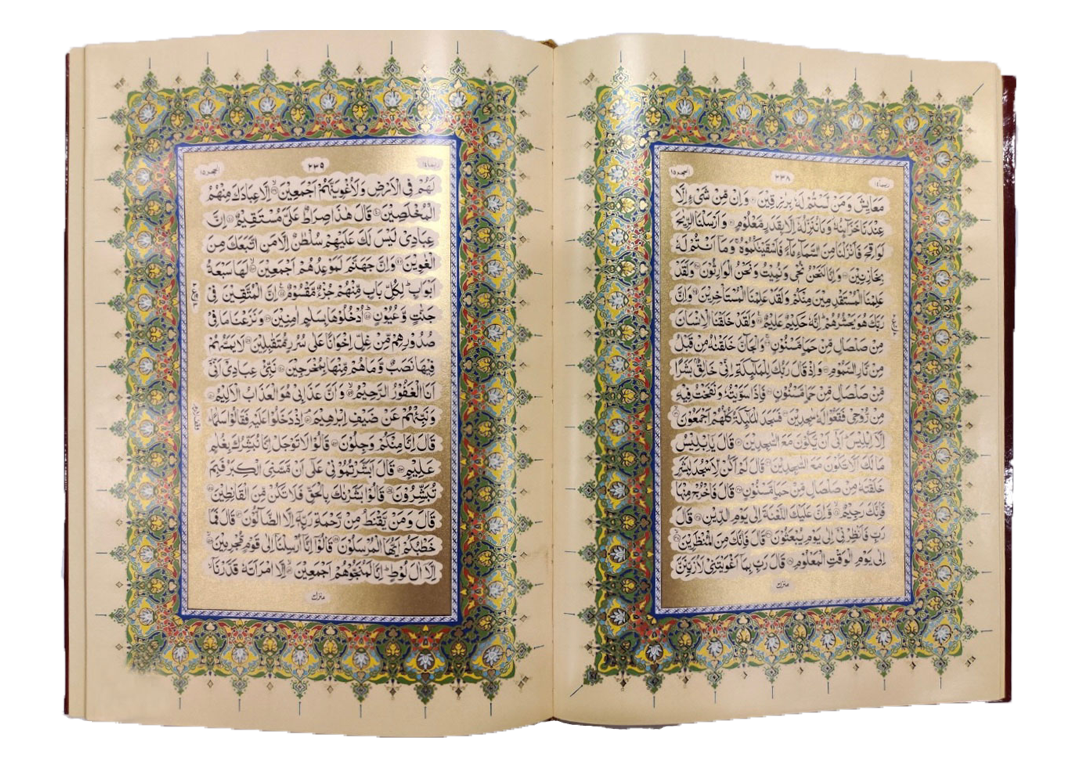 الحجر ١٥
مَعَايِشَ وَمَنْ لَسْتُمْ لَهُ بِرَازِقِينَ وَاِنْ مِنْ شَيْءٍ اِلَّا
عِنْدَنَا خَزَائِنُهُ وَمَا نُنَزِّلُهُ اِلَّا بِقَدَرٍ مَعْلُومٍ وَاَرْسَلْنَا الرِّيَاحَ
لَوَاقِحَ فَاَنْزَلْنَا مِنَ السَّمَاءِ مَاءً فَاَسْقَيْنَاكُمُوهُ وَمَا اَنْتُمْ لَهُ
بِخَازِنِينَ وَاِنَّا لَنَحْنُ نُحْيِي وَنُمِيتُ وَنَحْنُ الْوَارِثُونَ وَلَقَدْ
عَلِمْنَا الْمُسْتَقْدِمِينَ مِنْكُمْ وَلَقَدْ عَلِمْنَا الْمُسْتَأْخِرِينَ وَاِنَّ
رَبَّكَ هُوَ يَحْشُرُهُمْ اِنَّهُ حَكِيمٌ عَلِيمٌ وَلَقَدْ خَلَقْنَا الْاِنْسَانَ
مِنْ صَلْصَالٍ مِنْ حَمَاٍ مَسْنُونٍ وَالْجَانَّ خَلَقْنَاهُ مِنْ قَبْلُ
مِنْ نَارِ السَّمُومِ وَاِذْ قَالَ رَبُّكَ لِلْمَلَائِكَةِ اِنِّي خَالِقٌ بَشَرًا
مِنْ صَلْصَالٍ مِنْ حَمَاٍ مَسْنُونٍ فَاِذَا سَوَّيْتُهُ وَنَفَخْتُ فِيهِ
مِنْ رُوحِي فَقَعُوا لَهُ سَاجِدِينَ فَسَجَدَ الْمَلَائِكَةُ كُلُّهُمْ اَجْمَعُونَ
اِلَّا اِبْلِيسَ اَبَى اَنْ يَكُونَ مَعَ السَّاجِدِينَ قَالَ يَا اِبْلِيسُ
مَا لَكَ اَلَّا تَكُونَ مَعَ السَّاجِدِينَ قَالَ لَمْ اَكُنْ لِاَسْجُدَ لِبَشَرٍ
خَلَقْتَهُ مِنْ صَلْصَالٍ مِنْ حَمَاٍ مَسْنُونٍ قَالَ فَاخْرُجْ مِنْهَا
فَاِنَّكَ رَجِيمٌ وَاِنَّ عَلَيْكَ اللَّعْنَةَ اِلَى يَوْمِ الدِّينِ قَالَ
رَبِّ فَاَنْظِرْنِي اِلَى يَوْمِ يُبْعَثُونَ قَالَ فَاِنَّكَ مِنَ الْمُنْظَرِينَ
اِلَى يَوْمِ الْوَقْتِ الْمَعْلُومِ قَالَ رَبِّ بِمَا اَغْوَيْتَنِي لَاُزَيِّنَنَّ
الحجر ١٥
لَهُمْ فِي الْاَرْضِ وَلَاُغْوِيَنَّهُمْ اَجْمَعِينَ اِلَّا عِبَادَكَ مِنْهُمُ
الْمُخْلَصِينَ قَالَ هٰذَا صِرَاطٌ عَلَيَّ مُسْتَقِيمٌ اِنَّ
عِبَادِي لَيْسَ لَكَ عَلَيْهِمْ سُلْطَانٌ اِلَّا مَنِ اتَّبَعَكَ مِنَ
الْغَاوِينَ وَاِنَّ جَهَنَّمَ لَمَوْعِدُهُمْ اَجْمَعِينَ لَهَا سَبْعَةُ
اَبْوَابٍ لِكُلِّ بَابٍ مِنْهُمْ جُزْءٌ مَقْسُومٌ اِنَّ الْمُتَّقِينَ فِي
جَنَّاتٍ وَعُيُونٍ اُدْخُلُوهَا بِسَلَامٍ اٰمِنِينَ وَنَزَعْنَا مَا فِي
صُدُورِهِمْ مِنْ غِلٍّ اِخْوَانًا عَلَى سُرُرٍ مُتَقَابِلِينَ لَا يَمَسُّهُمْ
فِيهَا نَصَبٌ وَمَا هُمْ مِنْهَا بِمُخْرَجِينَ نَبِّئْ عِبَادِي اَنِّي
اَنَا الْغَفُورُ الرَّحِيمُ وَاَنَّ عَذَابِي هُوَ الْعَذَابُ الْاَلِيمُ
وَنَبِّئْهُمْ عَنْ ضَيْفِ اِبْرٰهِيمَ اِذْ دَخَلُوا عَلَيْهِ فَقَالُوا سَلَامًا
قَالَ اِنَّا مِنْكُمْ وَجِلُونَ قَالُوا لَا تَوْجَلْ اِنَّا نُبَشِّرُكَ بِغُلَامٍ
عَلِيمٍ قَالَ اَبَشَّرْتُمُونِي عَلَى اَنْ مَسَّنِيَ الْكِبَرُ فَبِمَ
تُبَشِّرُونَ قَالُوا بَشَّرْنَاكَ بِالْحَقِّ فَلَا تَكُنْ مِنَ الْقَانِطِينَ
قَالَ وَمَنْ يَقْنَطُ مِنْ رَحْمَةِ رَبِّهِ اِلَّا الضَّالُّونَ قَالَ فَمَا
خَطْبُكُمْ اَيُّهَا الْمُرْسَلُونَ قَالُوا اِنَّا اُرْسِلْنَا اِلَى قَوْمٍ مُجْرِمِينَ
اِلَّا اٰلَ لُوطٍ اِنَّا لَمُنَجُّوهُمْ اَجْمَعِينَ اِلَّا امْرَاَتَهُ قَدَّرْنَا